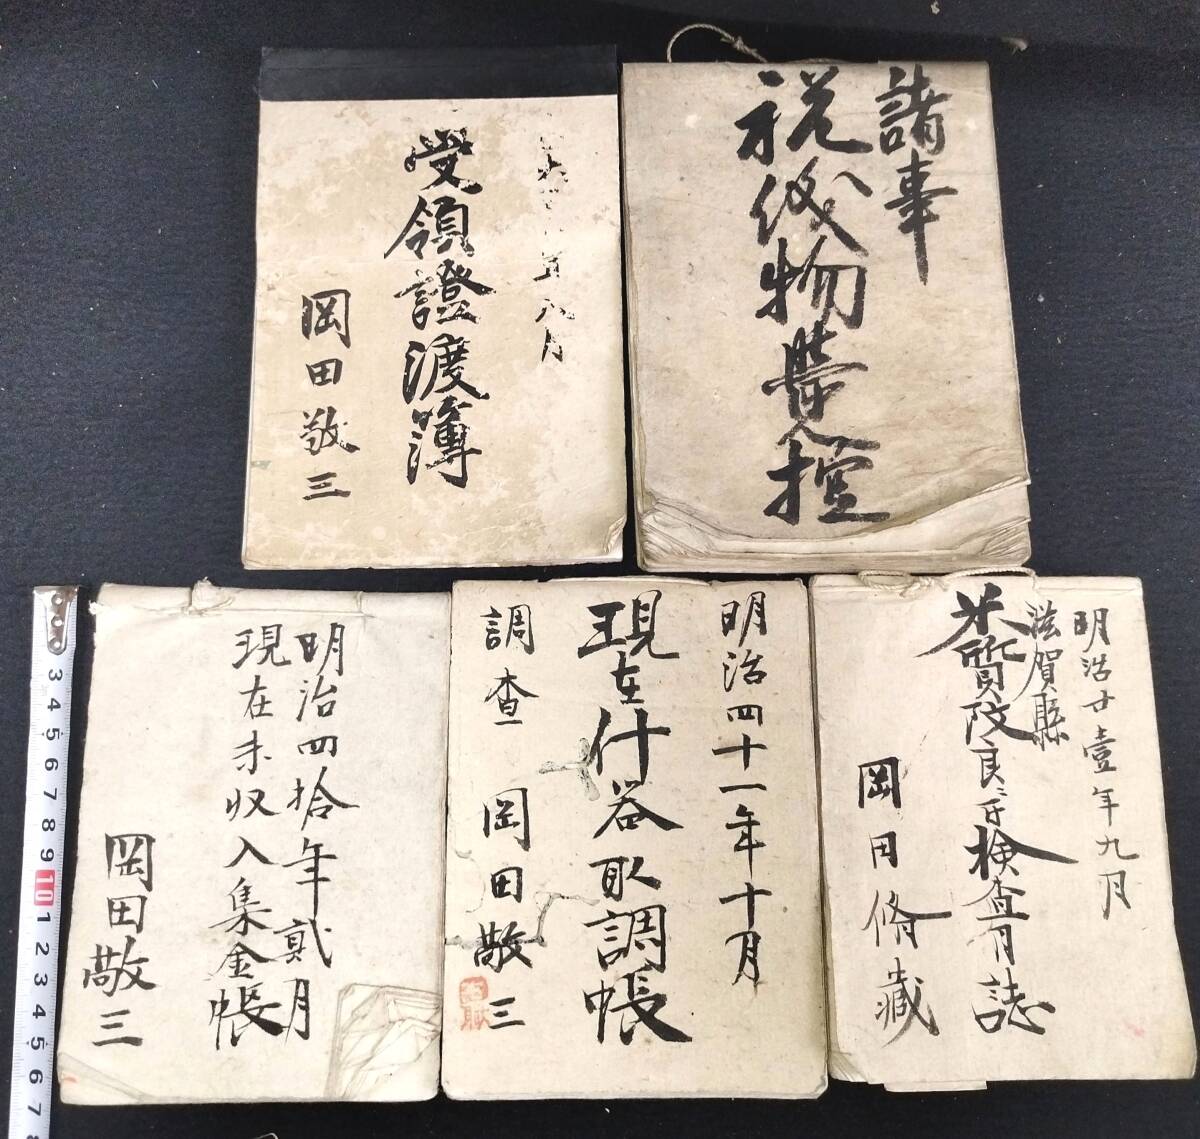 五八月
受領證渡簿
岡田敬三
諸事
控
明治四拾年貳月
現在未収入集金帳
岡田敬三
明治四十一年十月
現在什器取調帳
調査 岡田敬三
明治廿壹年九月
滋賀縣
米質改良
検査日誌
岡田脩藏
3 4 5 6 7 8 9 10 1 2 3 4 5 6 7